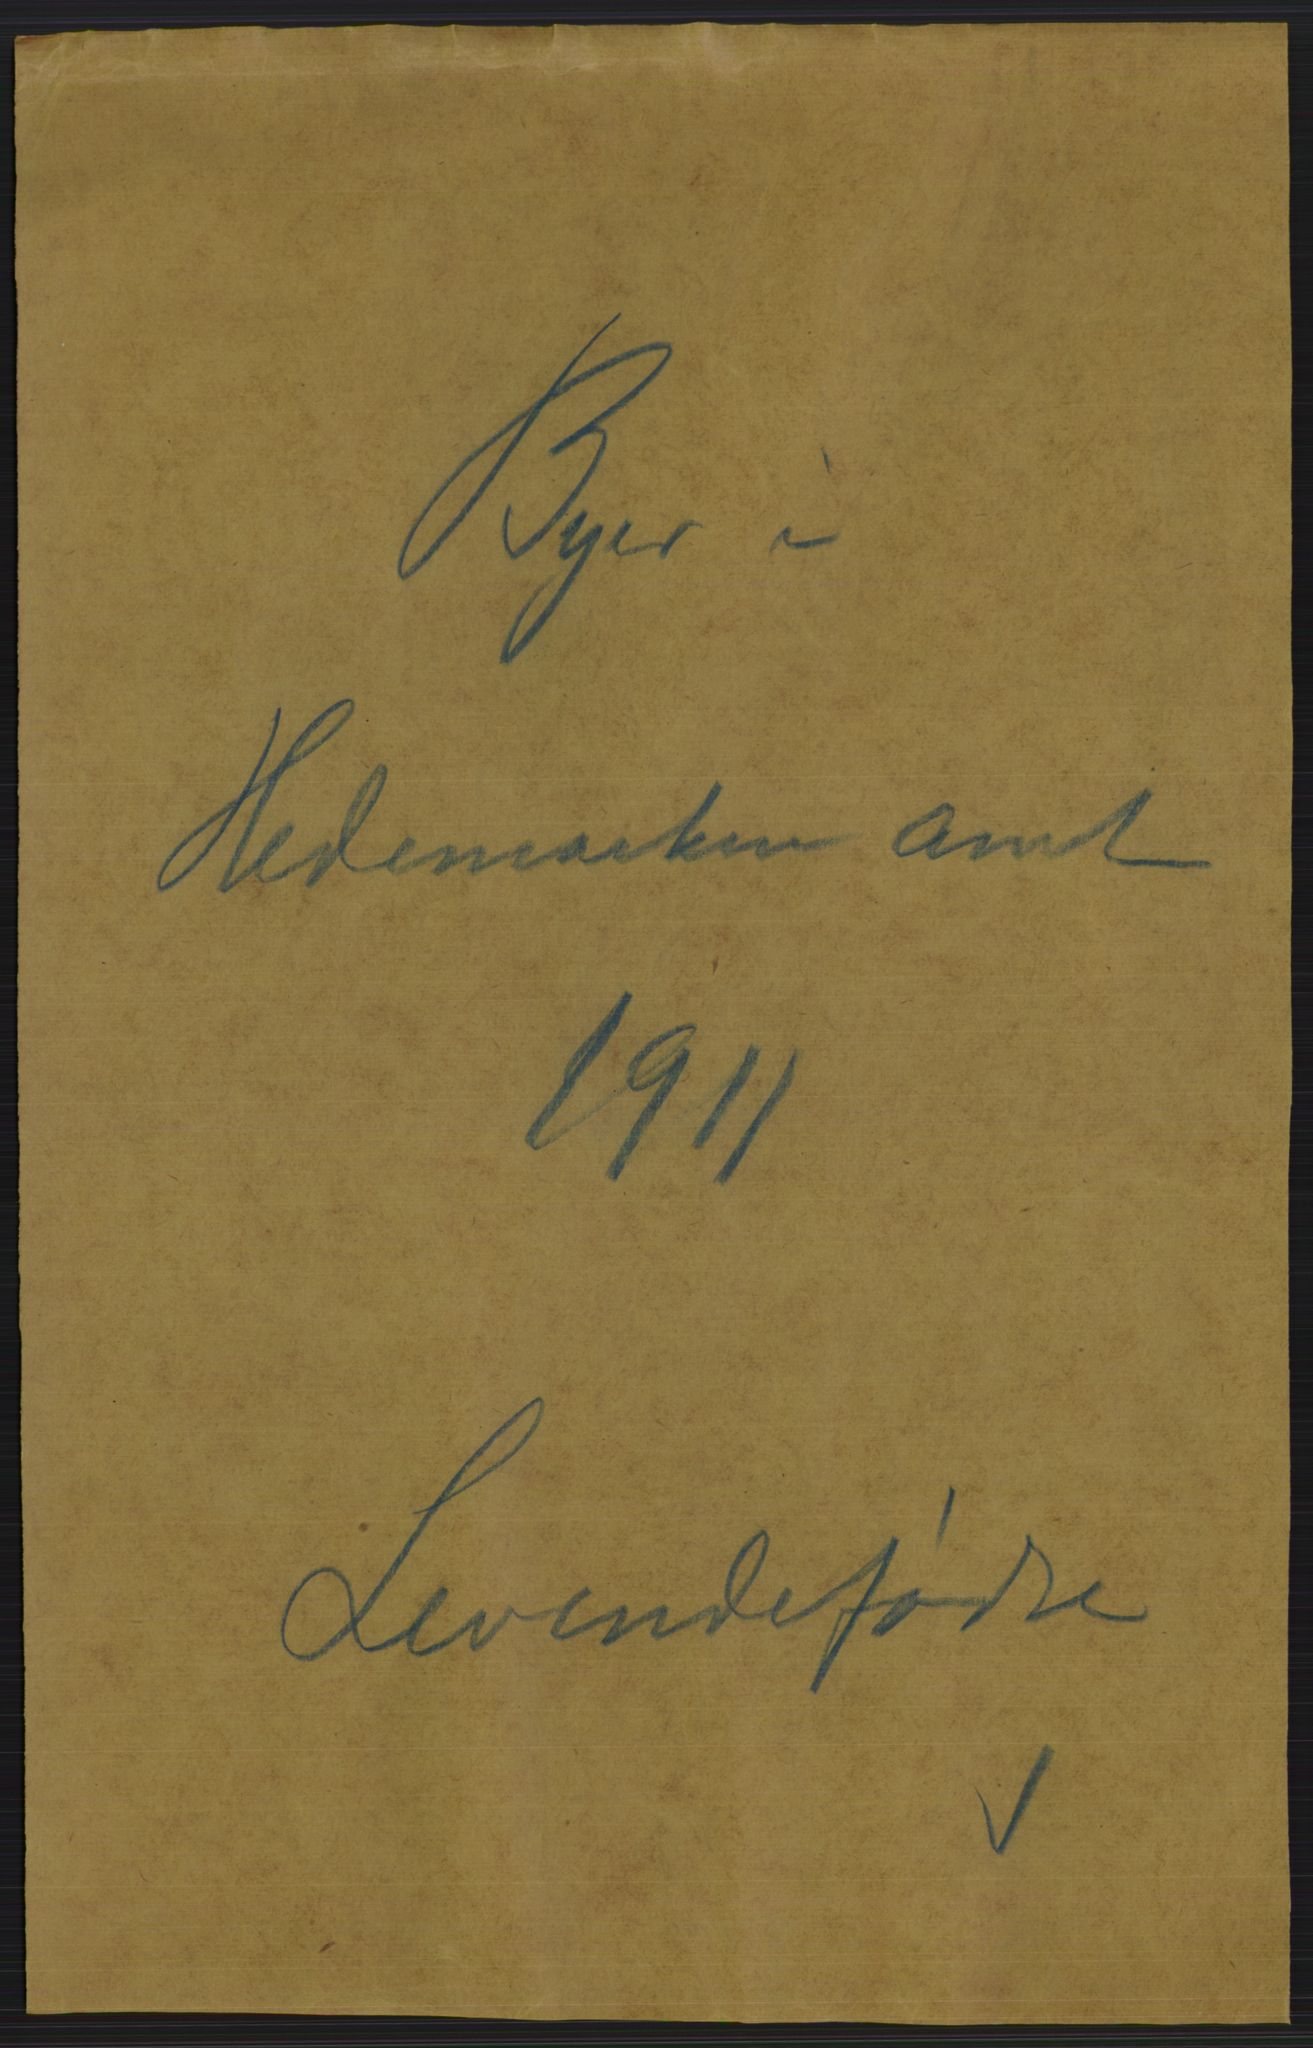 Byer i
Hedemarken amt
1911
Levendefødte
✓